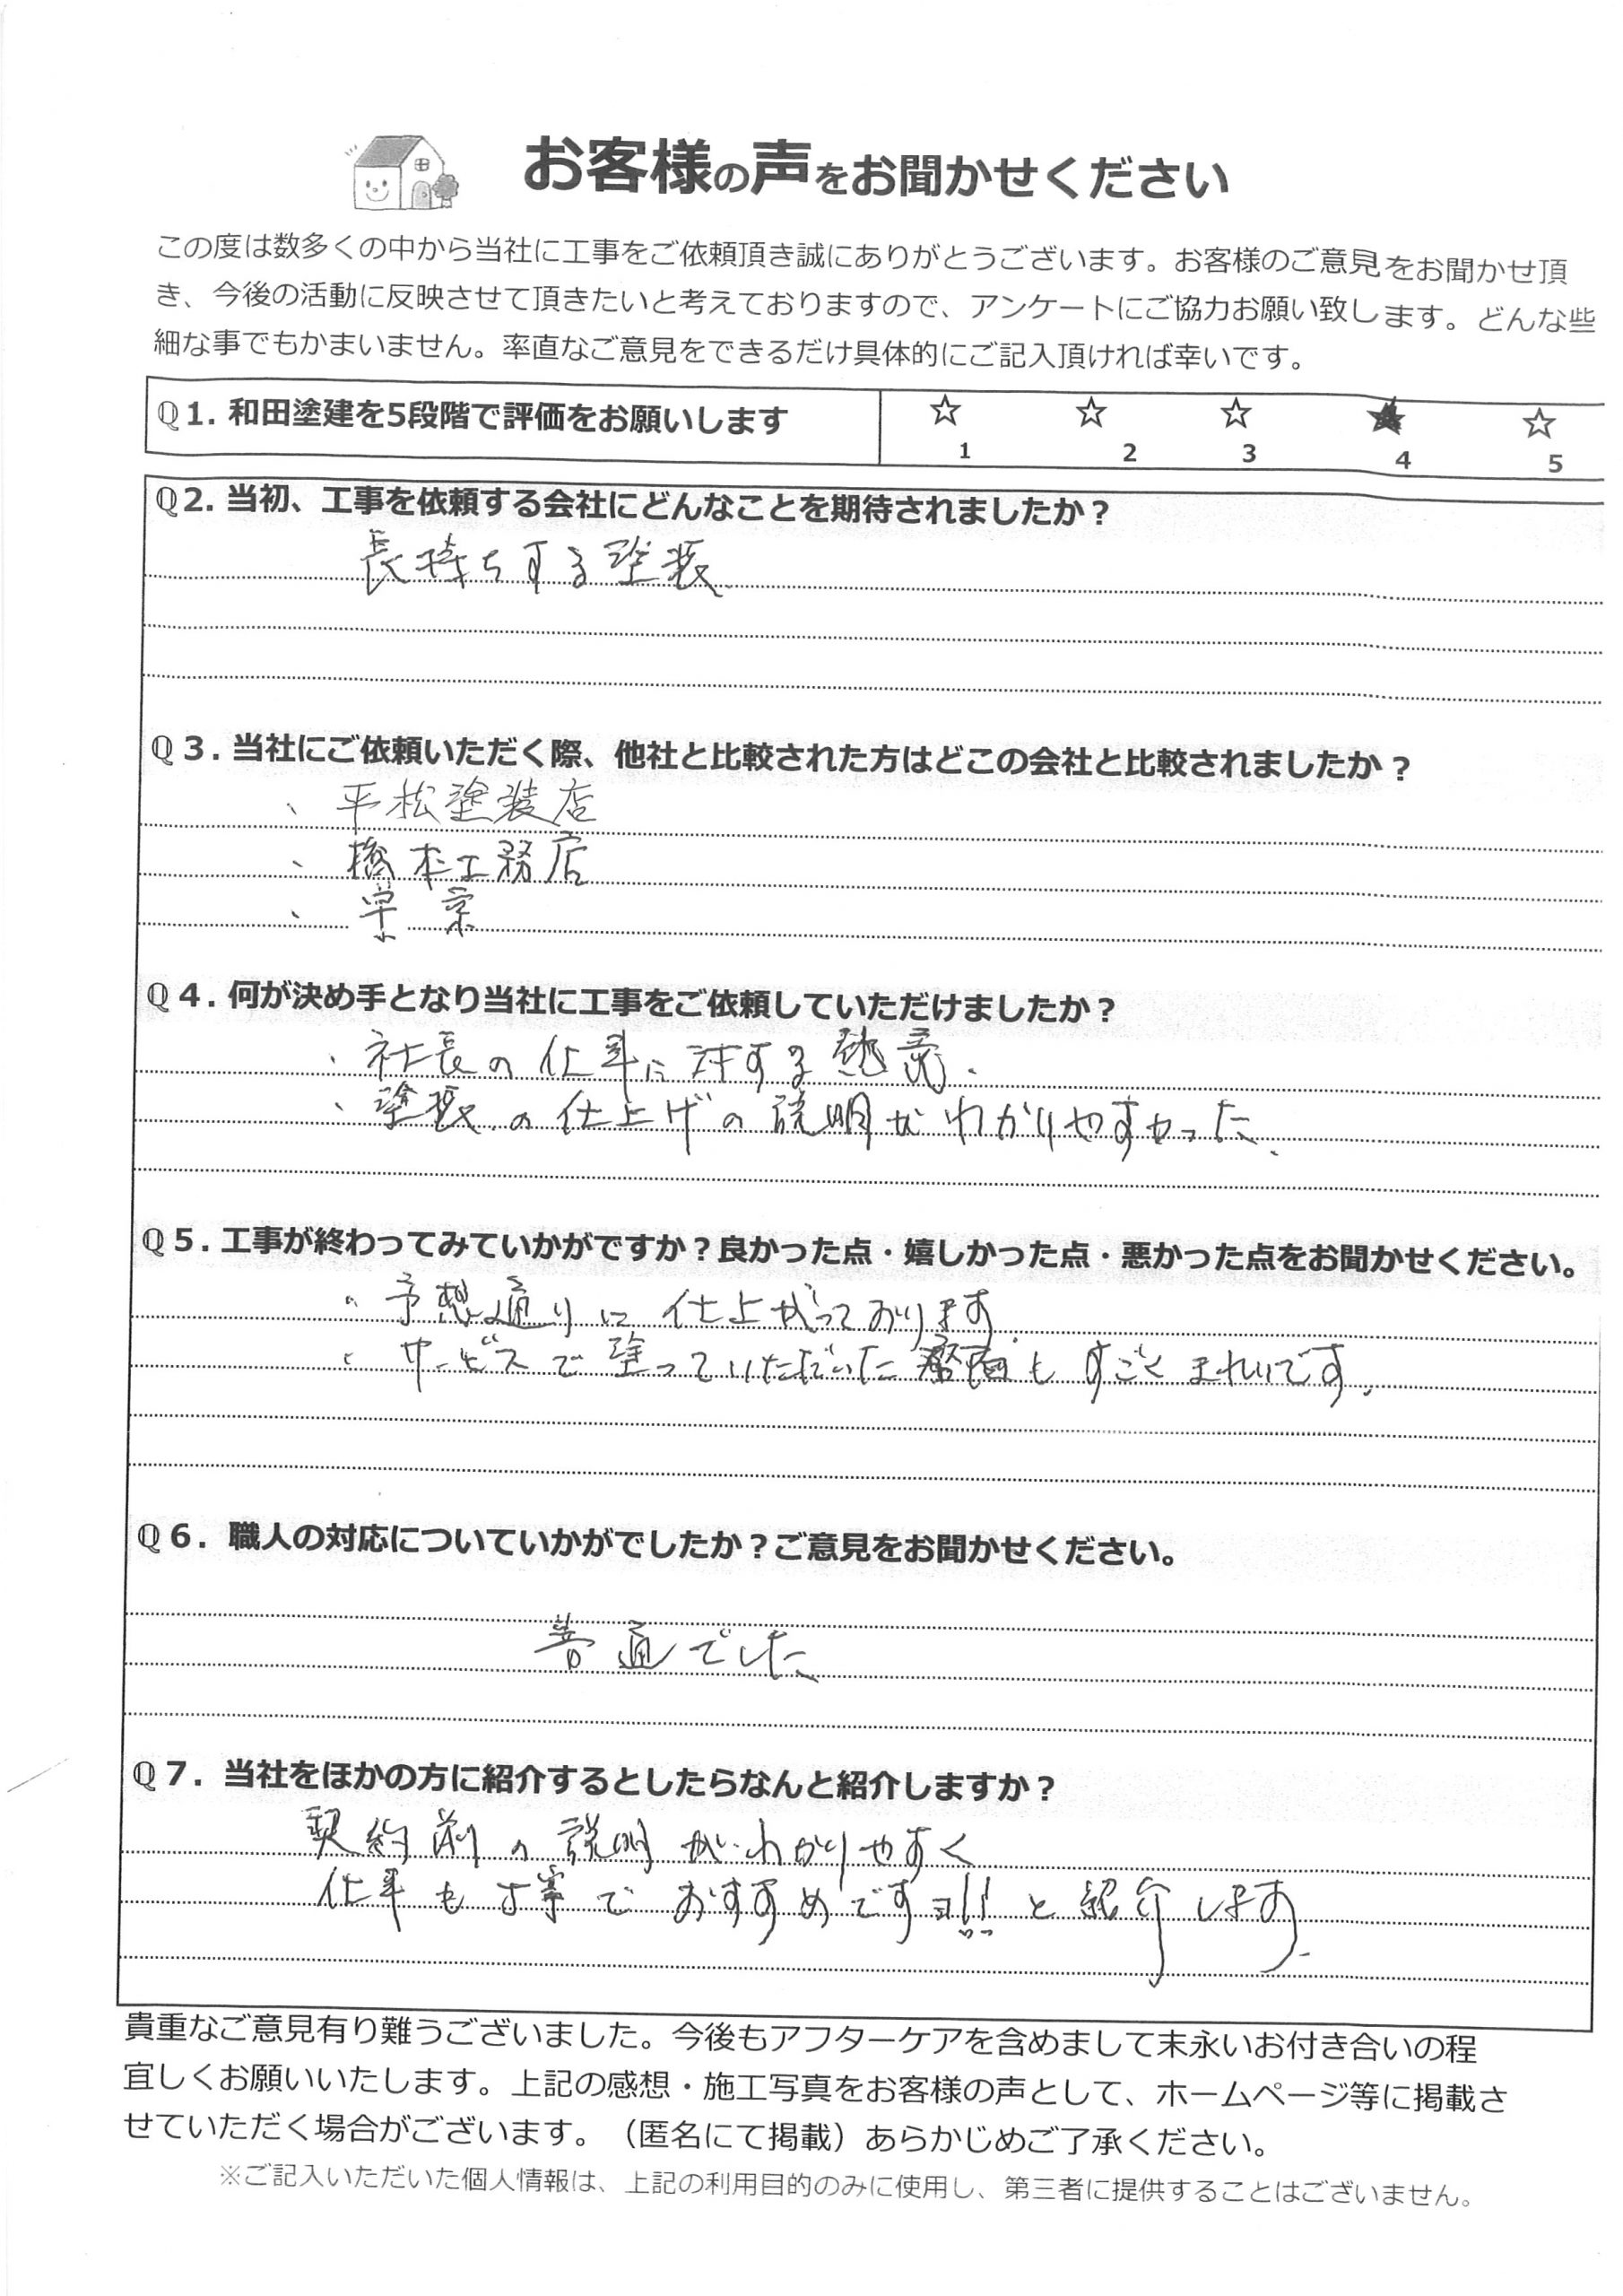 お客様の声をお聞かせください
この度は数多くの中から当社に工事をご依頼頂き誠にありがとうございます。お客様のご意見をお聞かせ頂
き、今後の活動に反映させて頂きたいと考えておりますので、アンケートにご協力お願い致します。どんな些
細な事でもかまいません。率直なご意見をできるだけ具体的にご記入頂ければ幸いです。
Q1. 和田塗建を5段階で評価をお願いします
☆ ☆ ☆ ★ ☆
1 2 3 4 5
Q2. 当初、工事を依頼する会社にどんなことを期待されましたか？
長持ちする塗装
Q３. 当社にご依頼いただく際、他社と比較された方はどこの会社と比較されましたか？
、平松塗装店
、橋本工務店
Q４. 何が決め手となり当社に工事をご依頼していただけましたか？
、社長の仕事に対する熱意.
、塗装の仕上げの説明がわかりやすかった.
Q５. 工事が終わってみていかがですか？良かった点・嬉しかった点・悪かった点をお聞かせください。
・予想通りに仕上がっております.
・サービスで塗っていただいた もすごくきれいです.
Q６. 職人の対応についていかがでしたか？ご意見をお聞かせください。
普通でした
Q７. 当社をほかの方に紹介するとしたらなんと紹介しますか？
契約前の説明がわかりやすく
仕事も丁寧でおすすめですヨ!! と紹介します.
貴重なご意見有り難うございました。今後もアフターケアを含めまして末永いお付き合いの程
宜しくお願いいたします。上記の感想・施工写真をお客様の声として、ホームページ等に掲載さ
せていただく場合がございます。（匿名にて掲載）あらかじめご了承ください。
※ご記入いただいた個人情報は、上記の利用目的のみに使用し、第三者に提供することはございません。